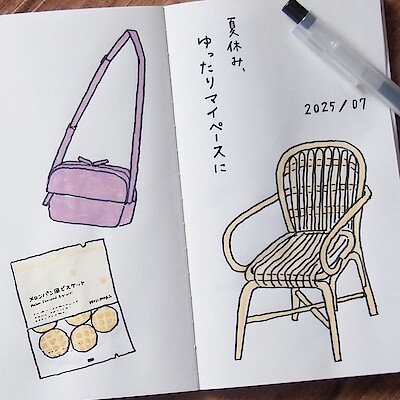 夏休み、
ゆったりマイペースに
2025/07
メロンパン風ビスケット